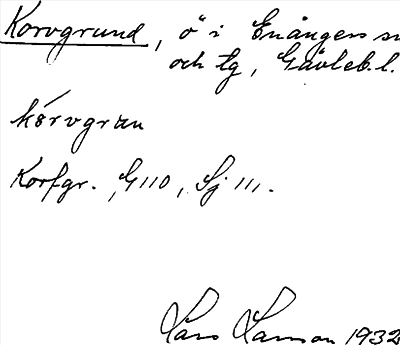 Korvgrund, ö i Enångers sn
och tg, Gävleb. l.
kórvgran
Korfgr. , G 110, Sj 111.
Lars Larsson 1932